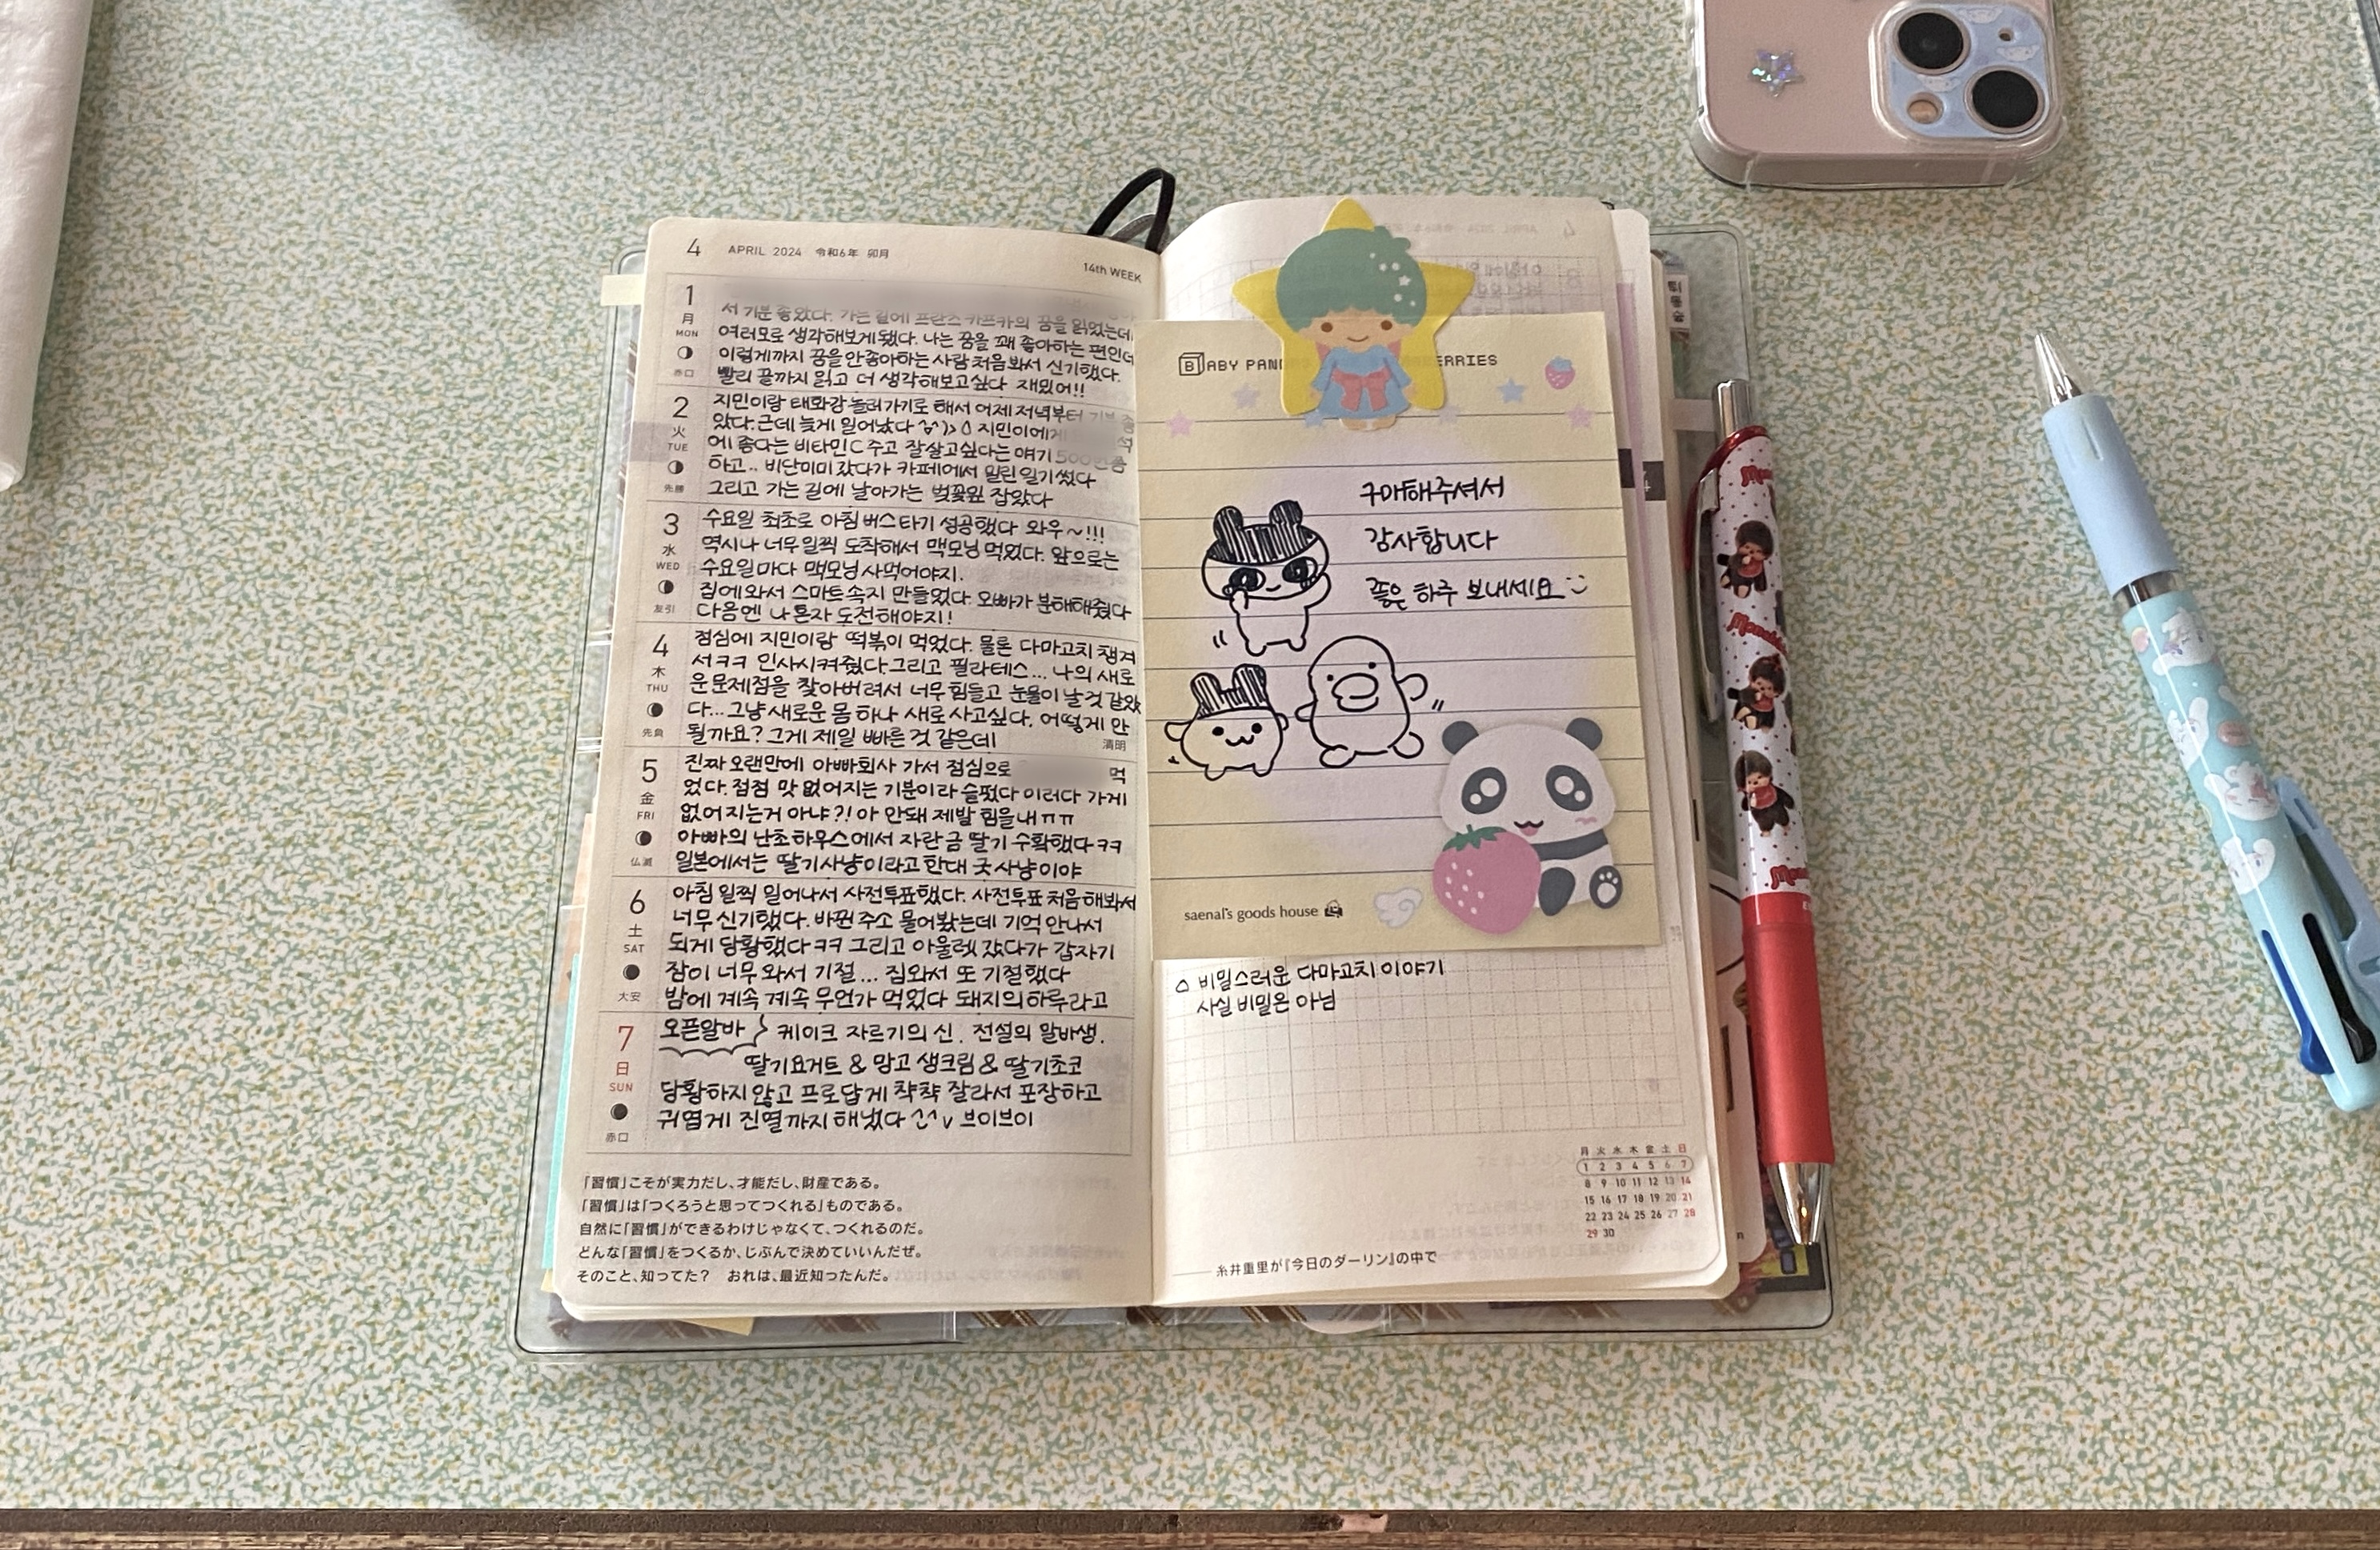 4 APRIL 2024 令和6年 卯月
14th WEEK
1
月
MON
赤口
서 기분 좋았다. 가는 길에 프란츠 카프카의 꿈을 읽었는데
여러모로 생각해보게 됐다. 나는 꿈을 꽤 좋아하는 편인데
이렇게까지 꿈을 안좋아하는 사람 처음 봐서 신기했다.
빨리 끝까지 읽고 더 생각해보고싶다 재밌어!!
2
火
TUE
先勝
지민이랑 태화강 놀러가기로 해서 어제 저녁부터 기분 좋
았다. 근데 늦게 일어났다 지민이에게
에 좋다는 비타민C 주고 잘살고싶다는 얘기 500번쯤
하고.. 비단미미 갔다가 카페에서 밀린 일기 썼다
그리고 가는 길에 날아가는 벚꽃잎 잡았다
3
水
WED
友引
수요일 최초로 아침 버스 타기 성공했다 와우~!!!
역시나 너무 일찍 도착해서 맥모닝 먹었다. 앞으로는
수요일마다 맥모닝 사먹어야지.
집에 와서 스마트속지 만들었다. 오빠가 분해해줬다
다음엔 나 혼자 도전해야지!
4
木
THU
先負
점심에 지민이랑 떡볶이 먹었다. 물론 다마고치 챙겨
서ㅋㅋ 인사시켜줬다. 그리고 필라테스... 나의 새로
운 문제점을 찾아버려서 너무 힘들고 눈물이 날 것 같았
다... 그냥 새로운 몸 하나 새로 사고싶다. 어떻게 안
될까요? 그게 제일 빠른 것 같은데
清明
5
金
FRI
仏滅
진짜 오랜만에 아빠회사 가서 점심으로 먹
었다. 점점 맛 없어지는 기분이라 슬펐다 이러다 가게
없어지는거 아냐?! 아 안돼 제발 힘을내ㅠㅠ
아빠의 난초하우스에서 자란 금 딸기 수확했다ㅋㅋ
일본에서는 딸기사냥이라고 한대 굿 사냥이야
6
土
SAT
大安
아침 일찍 일어나서 사전투표했다. 사전투표 처음 해봐서
너무 신기했다. 바뀐 주소 물어봤는데 기억 안나서
되게 당황했다ㅋㅋ 그리고 아울렛 갔다가 갑자기
잠이 너무 와서 기절... 집와서 또 기절했다
밤에 계속 계속 무언가 먹었다 돼지의 하루라고
7
日
SUN
赤口
오픈알바 케이크 자르기의 신. 전설의 알바생.
딸기요거트 & 망고 생크림 & 딸기초코
당황하지 않고 프로답게 착착 잘라서 포장하고
귀엽게 진열까지 해냈다 ^^v 브이브이
「習慣」こそが実力だし、才能だし、財産である。
「習慣」は「つくろうと思ってつくれる」ものである。
自然に「習慣」ができるわけじゃなくて、つくれるのだ。
どんな「習慣」をつくるか、じぶんで決めていいんだぜ。
そのこと、知ってた？ おれは、最近知ったんだ。
BABY PAN ERRIES
구매해주셔서
감사합니다
좋은 하루 보내세요
saenal's goods house
비밀스러운 다마고치 이야기
사실 비밀은 아님
月 火 水 木 金 土 日
1 2 3 4 5 6 7
8 9 10 11 12 13 14
15 16 17 18 19 20 21
22 23 24 25 26 27 28
29 30
糸井重里が『今日のダーリン』の中で